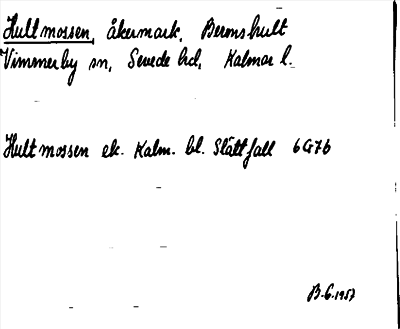 Hultmossen, åkermark, Bermshult
Vimmerby sn, Sevede hd, Kalmar l.
Hultmossen ek. Kalm. bl. Slättfall 6G7b
B.G. 1957